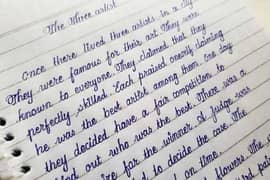 The three artist
Once there lived three artists in a city
They were famous for their art. They were
known to everyone. They claimed that they
perfectly skilled. Each praised oneself claiming
he was the best artist among them. one day
they decided have a fair competition to
find out who was the best. There was a
for the winner. A Judge was
to decide the case. The
on time.
flowers. The